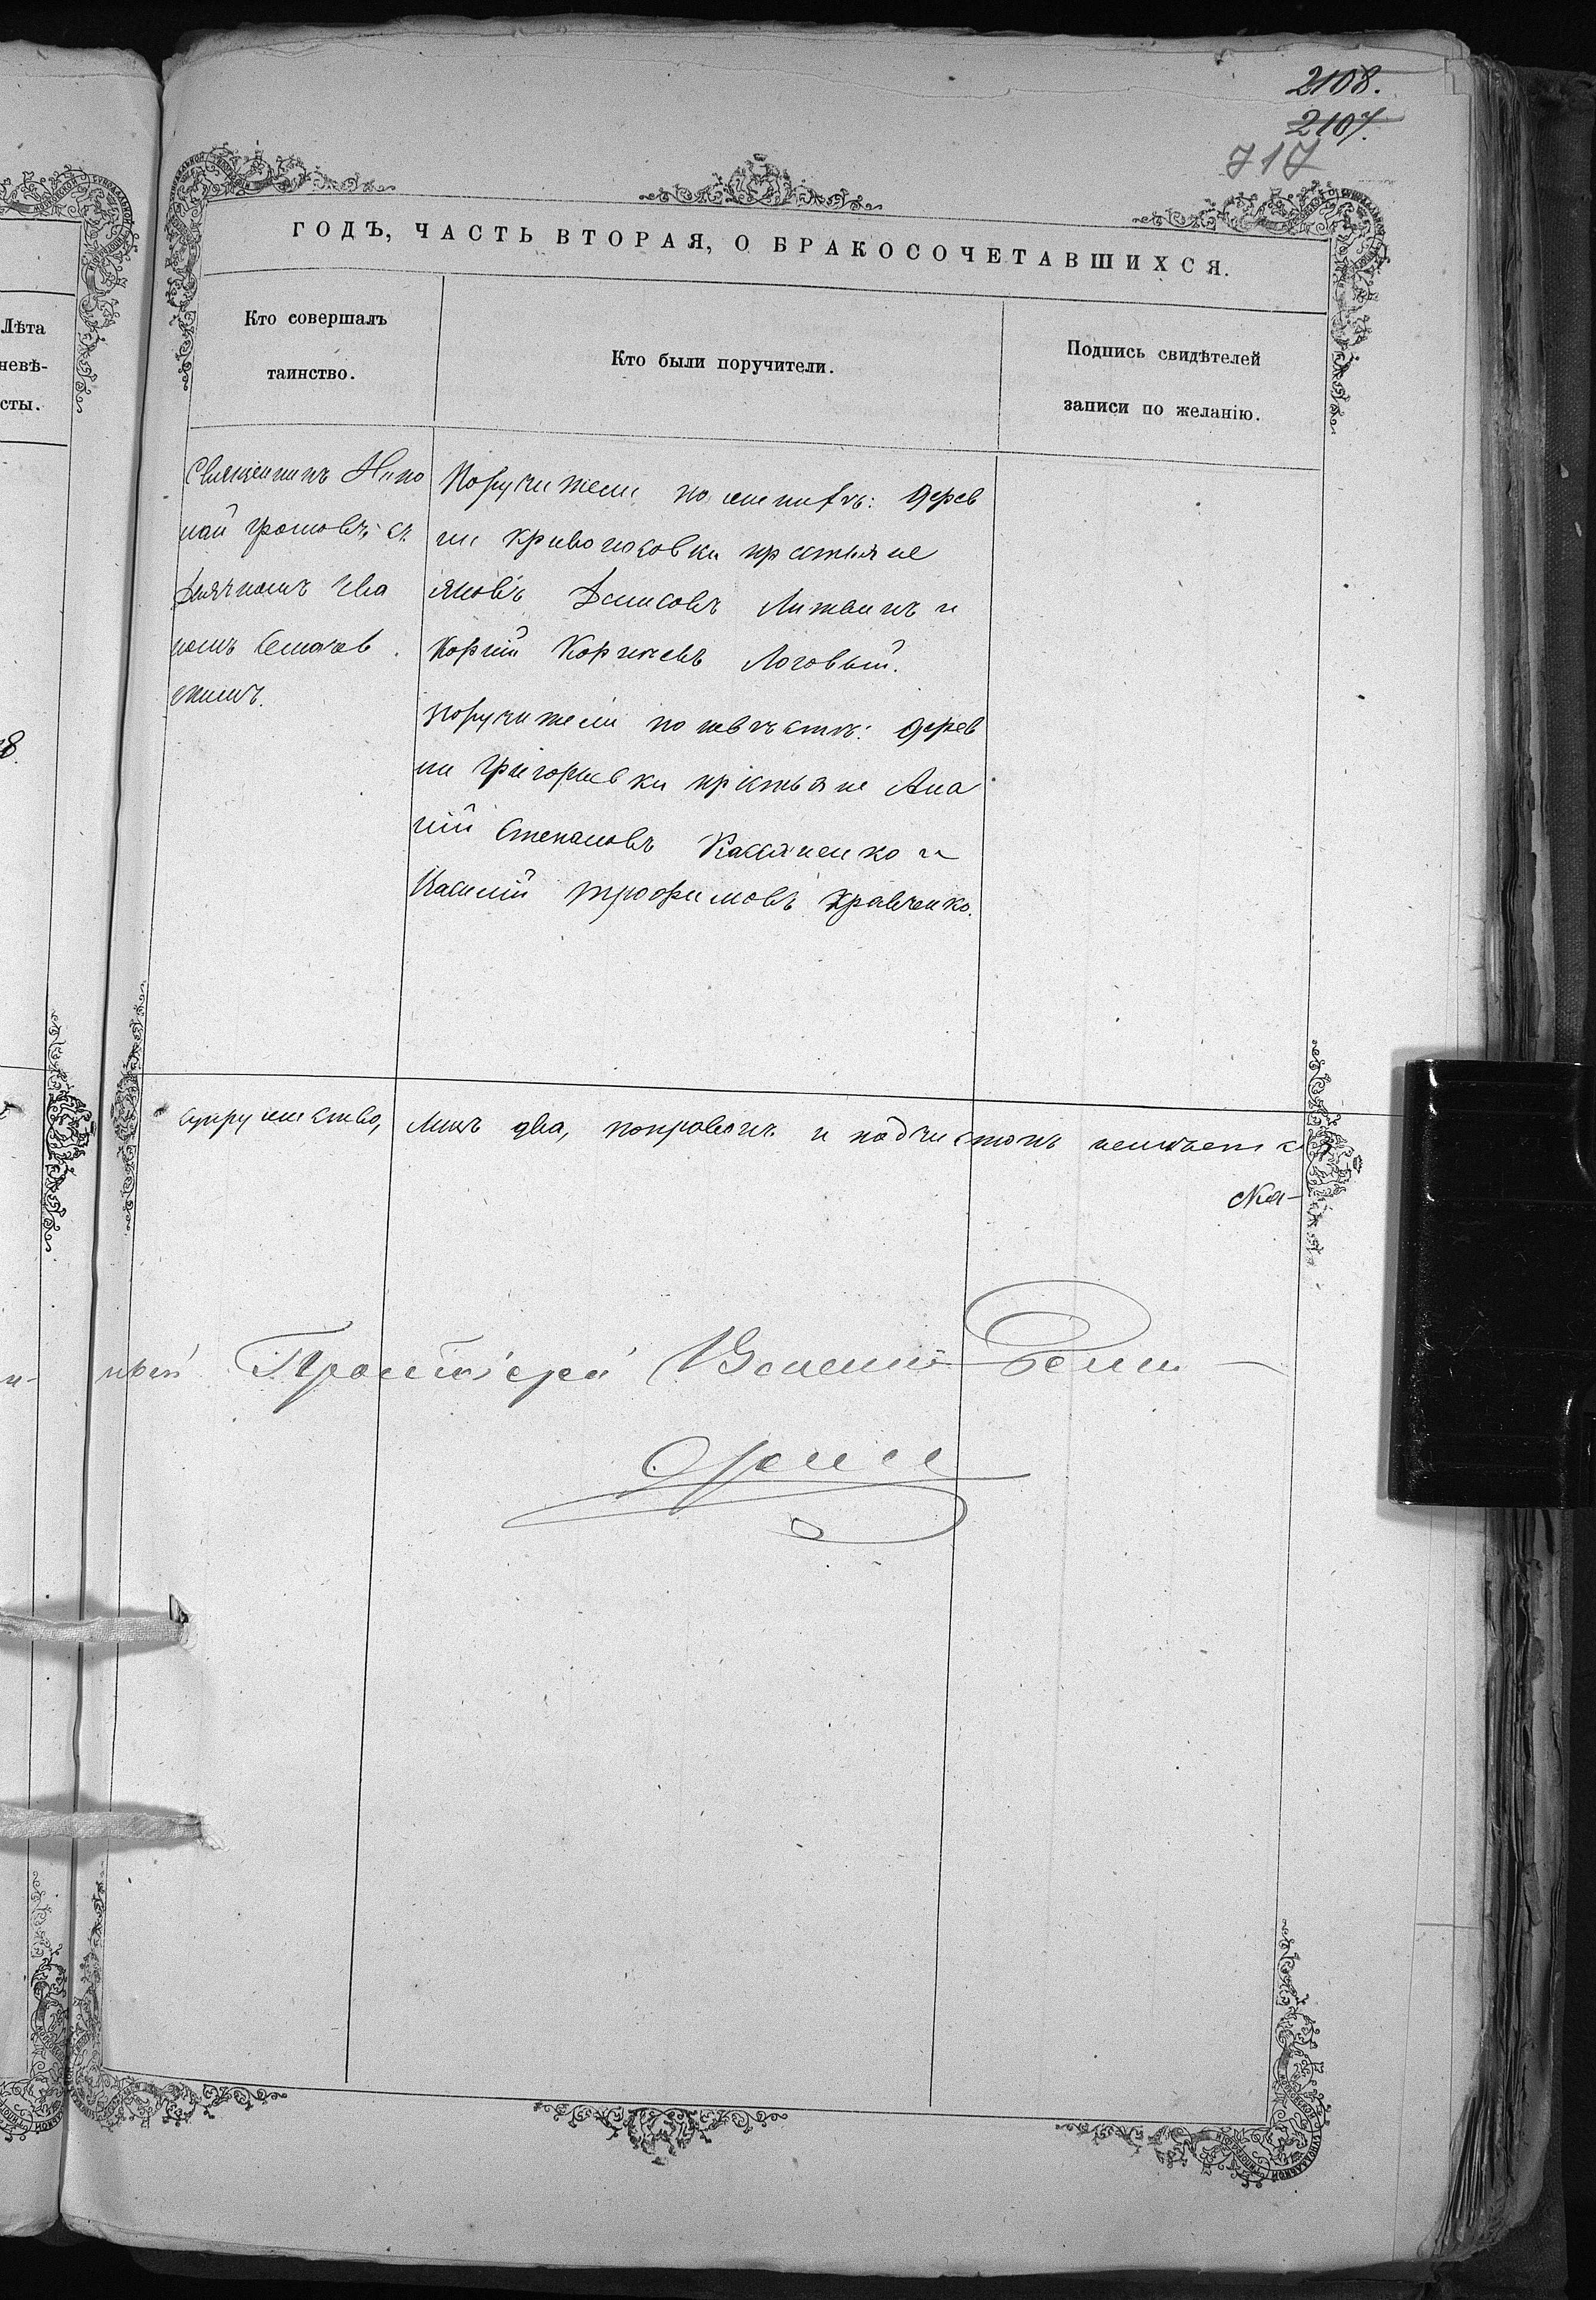 2108.
2107.
717
ГОДЪ, ЧАСТЬ ВТОРАЯ, О БРАКОСОЧЕТАВШИХСЯ.
Лѣта
невѣ-
сты.
Кто совершалъ
таинство.
Кто были поручители.
Подпись свидѣтелей
записи по желанію.
Священникъ Нико
лай Громовъ съ
дьячкомъ Ива
номъ
Поручители по женихѣ: дерев
ни Кривоносовки крестьяне
Яковъ Денисовъ Литвинъ и
Корній Корнѣевъ Логовый.
поручители по невѣстѣ: дерев
ни Григорьевки крестьяне Ана
ній Степановъ Кассяненко и
Василій Трофимовъ Кравченко.
8.
супружество, лицъ два, поправокъ и подчистокъ неимѣетс
ный Протоіерей Василій